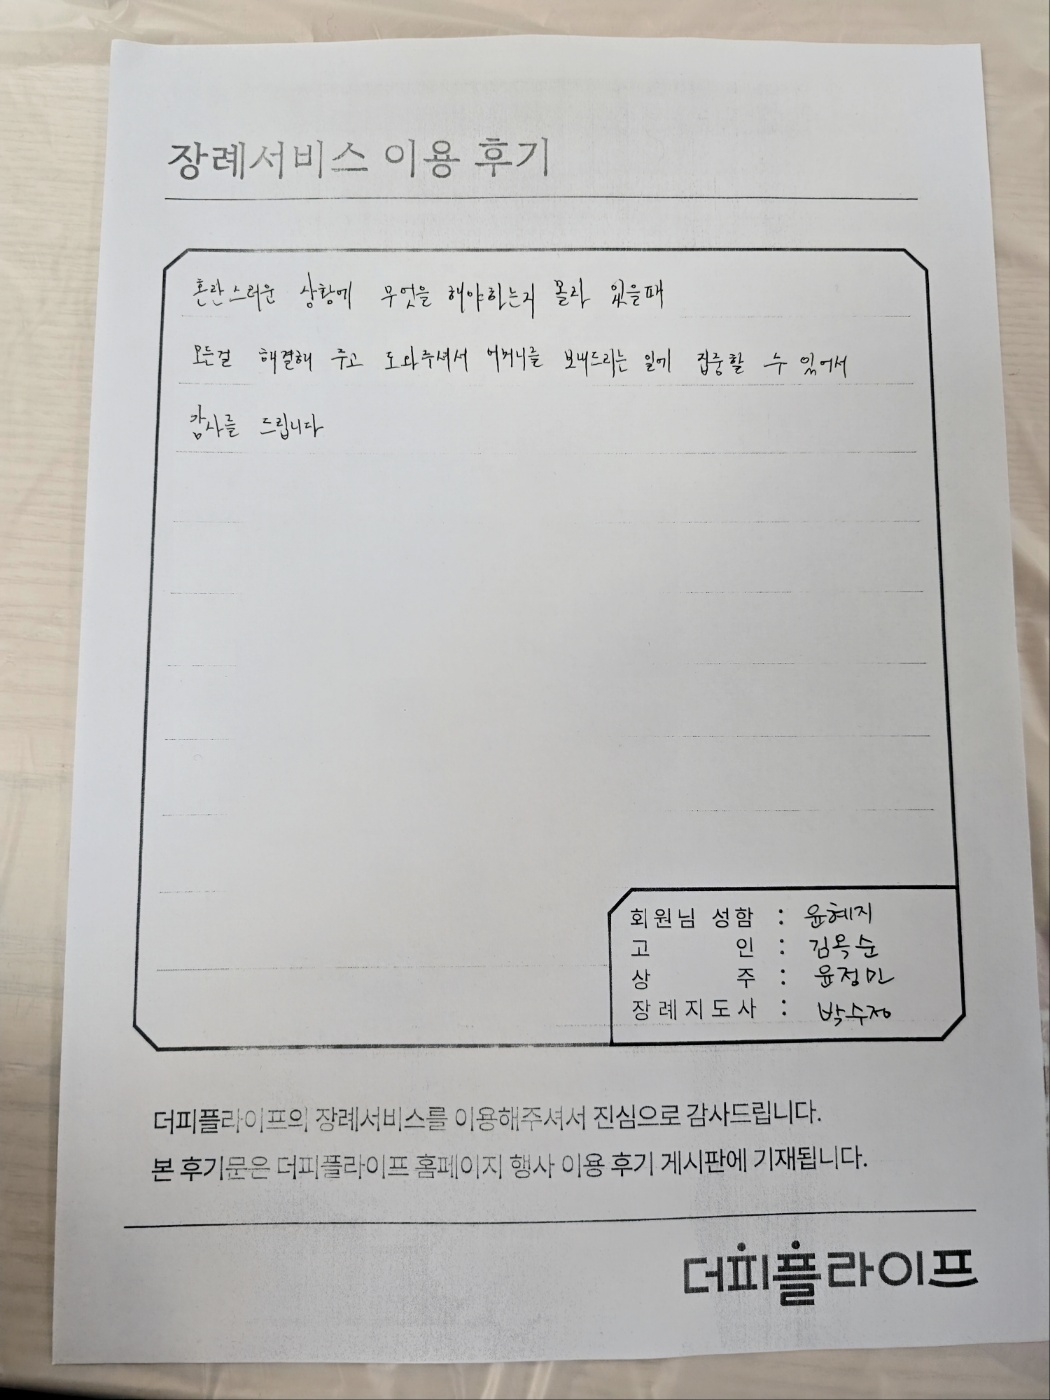 장례서비스 이용 후기
혼란스러운 상황에 무엇을 해야하는지 몰라 있을때
모든걸 해결해 주고 도와주셔서 어머니를 보내드리는 일에 집중할 수 있어서
감사를 드립니다
회원님 성함 : 윤혜지
고 인 : 김옥순
상 주 : 윤정민
장례지도사 : 박수정
더피플라이프의 장례서비스를 이용해주셔서 진심으로 감사드립니다.
본 후기문은 더피플라이프 홈페이지 행사 이용 후기 게시판에 기재됩니다.
더피플라이프